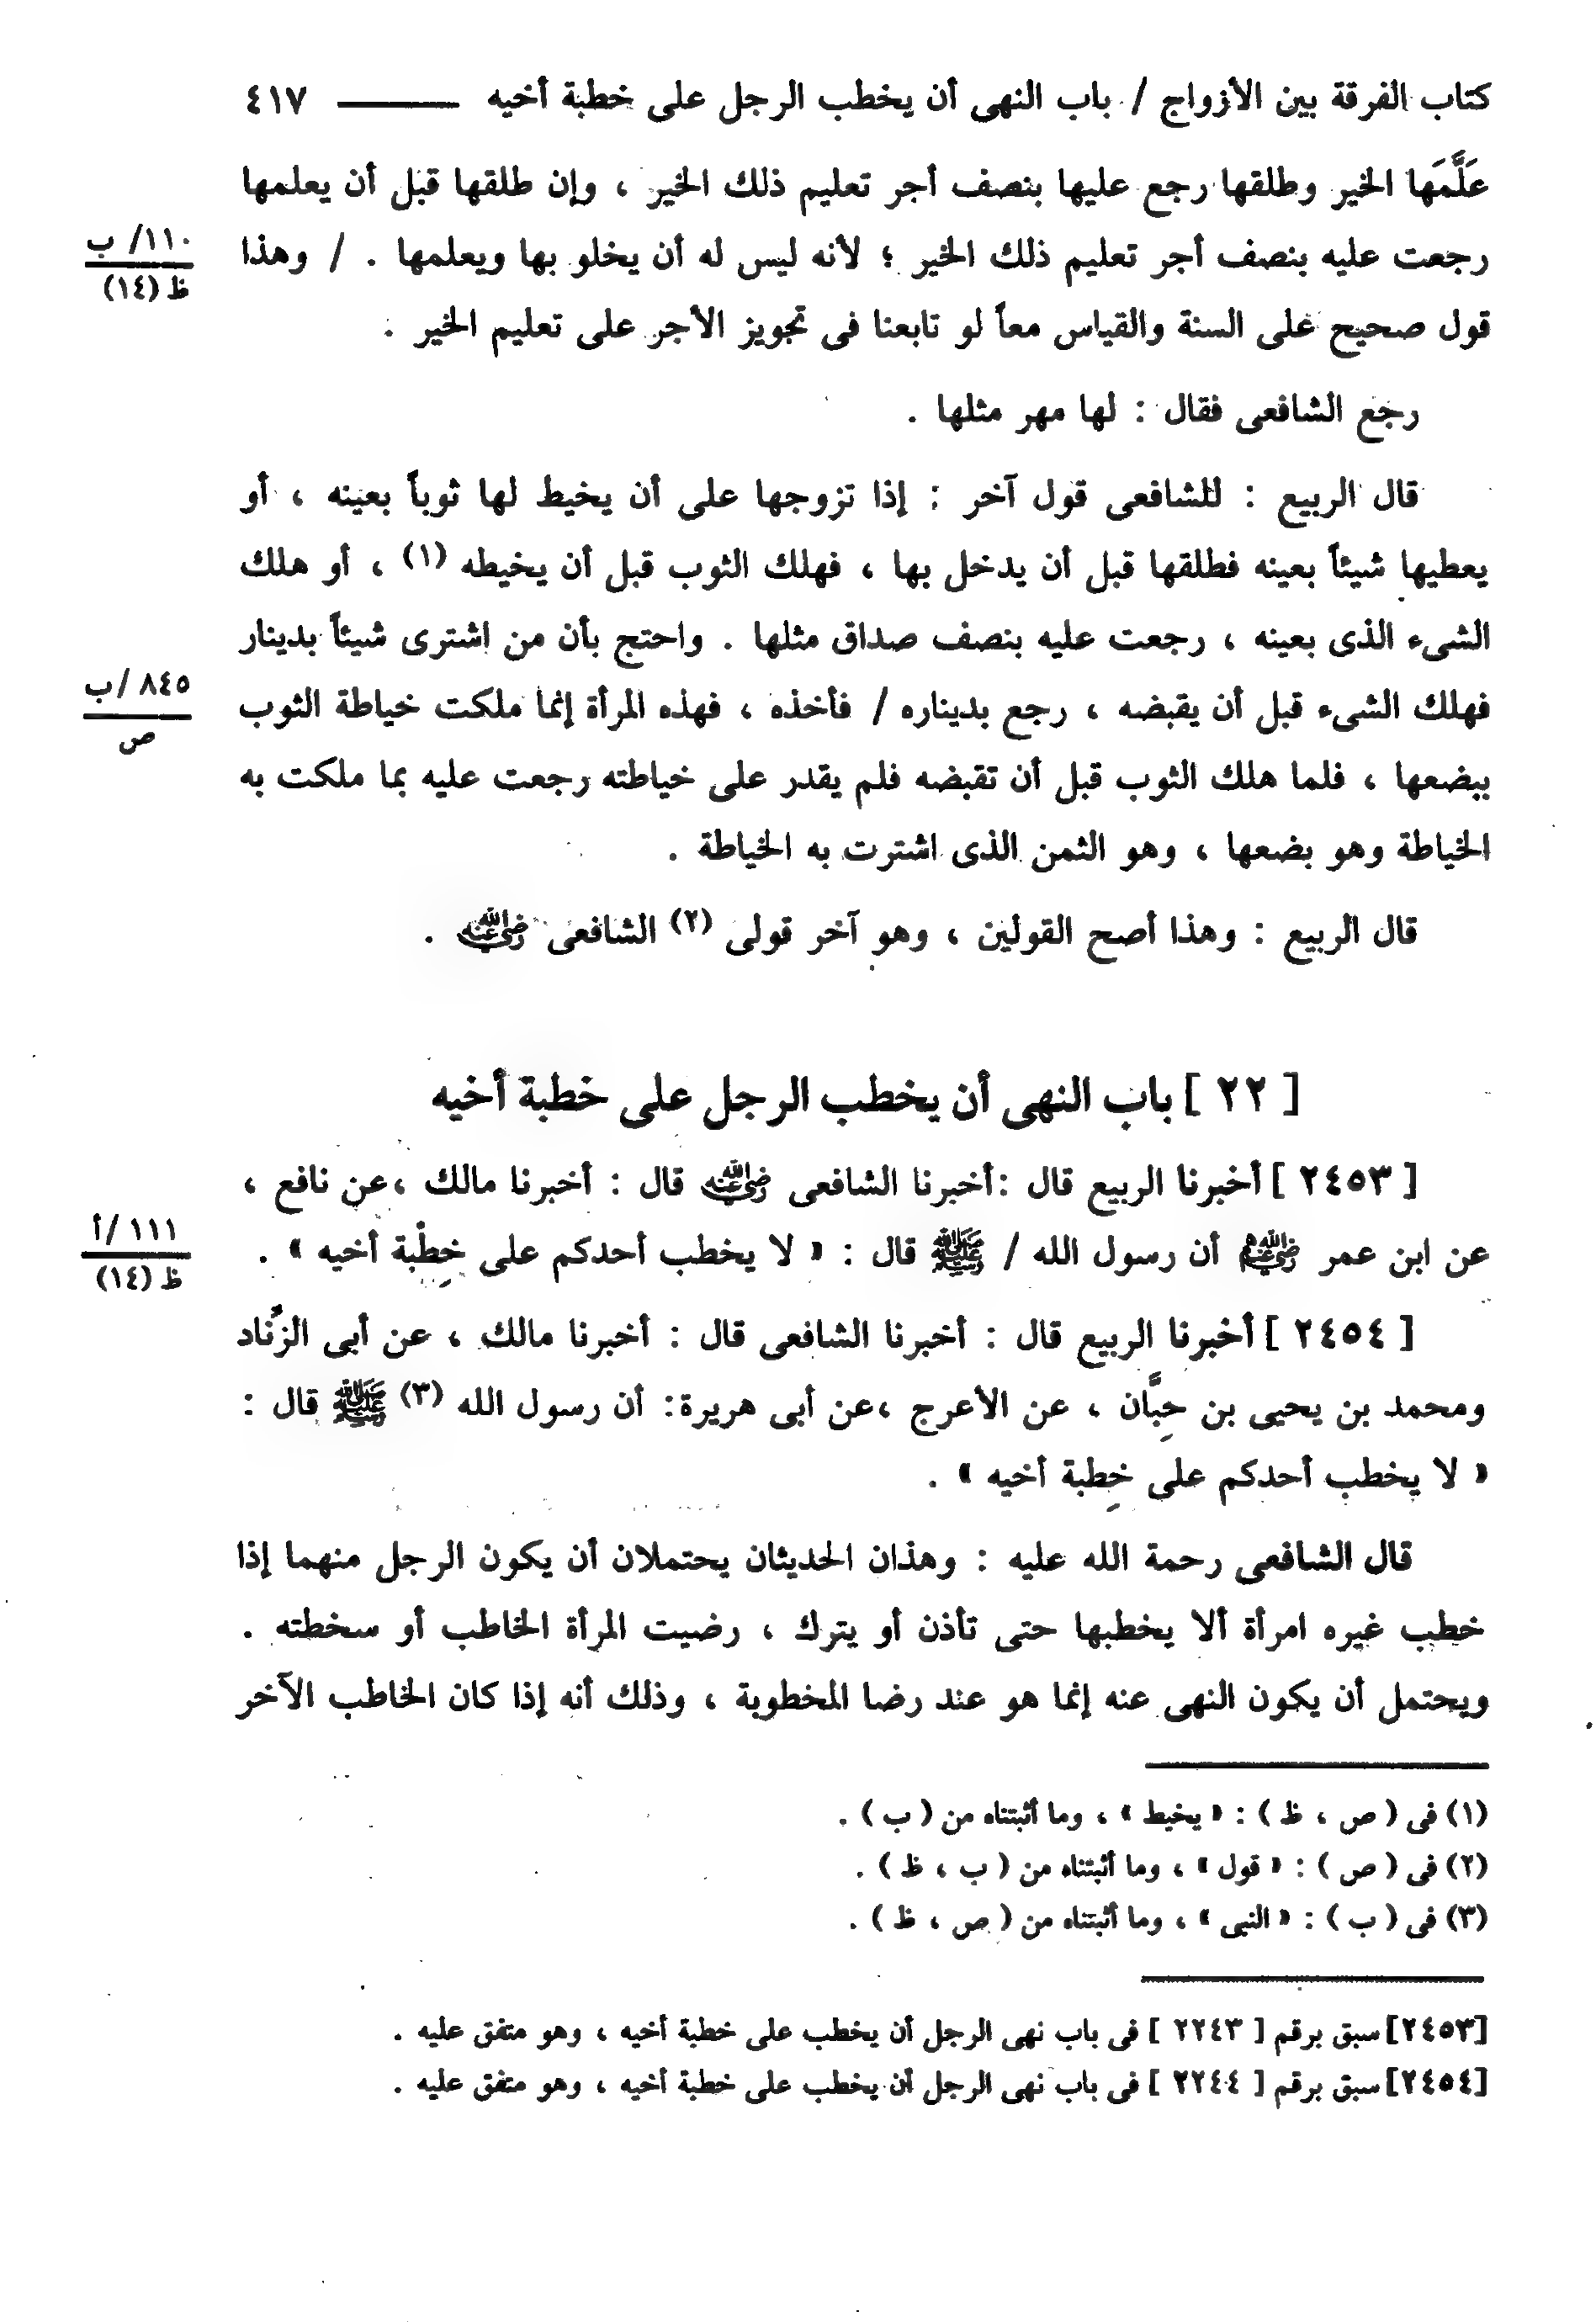 كتاب الفرقة بين الأزواج / باب النهى أن يخطب الرجل على خطبة أخيه ——— ٤١٧
عَلَّمَها الخير وطلقها رجع عليها بنصف أجر تعليم ذلك الخير ، وإن طلقها قبل أن يعلمها
رجعت عليه بنصف أجر تعليم ذلك الخير ؛ لأنه ليس له أن يخلو بها ويعلمها . / وهذا
١١٠/ ب
ظ (١٤)
قول صحيح على السنة والقياس معاً لو تابعنا فى تجويز الأجر على تعليم الخير .
رجع الشافعى فقال : لها مهر مثلها .
قال الربيع : للشافعى قول آخر : إذا تزوجها على أن يخيط لها ثوباً بعينه ، أو
يعطيها شيئاً بعينه فطلقها قبل أن يدخل بها ، فهلك الثوب قبل أن يخيطه (١) ، أو هلك
الشىء الذى بعينه ، رجعت عليه بنصف صداق مثلها . واحتج بأن من اشترى شيئاً بدينار
فهلك الشىء قبل أن يقبضه ، رجع بديناره / فأخذه ، فهذه المرأة إنما ملكت خياطة الثوب
٨٤٥ /ب
ص
ببضعها ، فلما هلك الثوب قبل أن تقبضه فلم يقدر على خياطته رجعت عليه بما ملكت به
الخياطة وهو بضعها ، وهو الثمن الذى اشترت به الخياطة .
قال الربيع : وهذا أصح القولين ، وهو آخر قولى (٢) الشافعى رضي الله عنه .
[ ٢٢ ] باب النهى أن يخطب الرجل على خطبة أخيه
[ ٢٤٥٣ ] أخبرنا الربيع قال :أخبرنا الشافعى رضي الله عنه قال : أخبرنا مالك ،عن نافع ،
عن ابن عمر رضي الله عنهما أن رسول الله / ﷺ قال : « لا يخطب أحدكم على خِطْبة أخيه » .
١١١ /أ
ظ (١٤)
[ ٢٤٥٤ ] أخبرنا الربيع قال : أخبرنا الشافعى قال : أخبرنا مالك ، عن أبى الزُّناد
ومحمد بن يحيى بن حِبَّان ، عن الأعرج ،عن أبى هريرة: أن رسول الله (٣) ﷺ قال :
« لا يخطب أحدكم على خِطبة أخيه » .
قال الشافعى رحمة الله عليه : وهذان الحديثان يحتملان أن يكون الرجل منهما إذا
خطب غيره امرأة ألا يخطبها حتى تأذن أو يترك ، رضيت المرأة الخاطب أو سخطته .
ويحتمل أن يكون النهى عنه إنما هو عند رضا المخطوبة ، وذلك أنه إذا كان الخاطب الآخر
(١) فى ( ص ، ظ ) : « يخيط » ، وما أثبتناه من ( ب ) .
(٢) فى ( ص ) : « قول » ، وما أثبتناه من ( ب ، ظ ) .
(٣) فى ( ب ) : « النبى » ، وما أثبتناه من ( ص ، ظ ) .
[٢٤٥٣] سبق برقم [ ٢٢٤٣ ] فى باب نهى الرجل أن يخطب على خطبة أخيه ، وهو متفق عليه .
[٢٤٥٤] سبق برقم [ ٢٢٤٤ ] فى باب نهى الرجل أن يخطب على خطبة أخيه ، وهو متفق عليه .